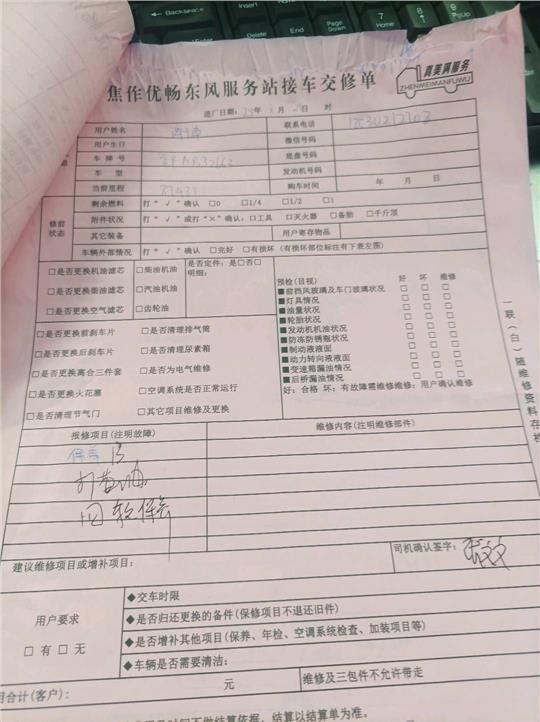 Backspace
Insert
Delete
Home
End
Page Up
Page Down
真美满服务
ZHENMEIMANFUWU
焦作优畅东风服务站接车交修单
进厂日期： 年 月 日 时
用户姓名 联系电话
用户生日 微信号码
车牌号 底盘号码
车型 发动机号码
当前里程 购车时间 年 月 日
修前状态
剩余燃料 打“√”确认 □0 □1/4 □1/2 □1
附件状况 打“√”或打“×”确认：□工具 □灭火器 □备胎 □千斤顶
其它装备 用户寄存物品
车辆外部情况 打“√”确认 □完好 □有损坏（有损坏部位标注有下表左图）
□是否更换机油滤芯 □柴油机油 是否定件：是□否□
□是否更换柴油滤芯 □汽油机油 明细：
□是否更换空气滤芯 □齿轮油
□是否更换前刹车片 □是否清理排气筒
□是否更换后刹车片 □是否清理尿素箱
□是否更换离合三件套 □是否为电气维修
□是否更换火花塞 □空调系统是否正常运行
□是否清理节气门 □其它项目维修及更换
预检(目视) 好 坏 维修
■前挡风玻璃及车门玻璃状况 □ □ □
■灯具情况 □ □ □
■油量状况 □ □ □
■轮胎状况 □ □ □
■发动机机油状况 □ □ □
■防冻防锈瓶状况 □ □ □
■制动液液面 □ □ □
■动力转向液液面 □ □ □
■变速箱漏油情况 □ □ □
■后桥漏油情况 □ □ □
好：合格 坏：有故障需维修维修：用户确认维修
一联（白）随维修资料存档
报修项目(注明故障) 维修内容(注明维修部件)
保养
打黄油
建议维修项目或增补项目： 司机确认签字：
用户要求
□有 □无
◆交车时限
◆是否归还更换的备件(保修项目不退还旧件)
◆是否增补其他项目(保养、年检、空调系统检查、加装项目等)
◆车辆是否需要清洁：
用合计(客户)： 元 维修及三包件不允许带走
时间不做结算依据，结算以结算单为准。